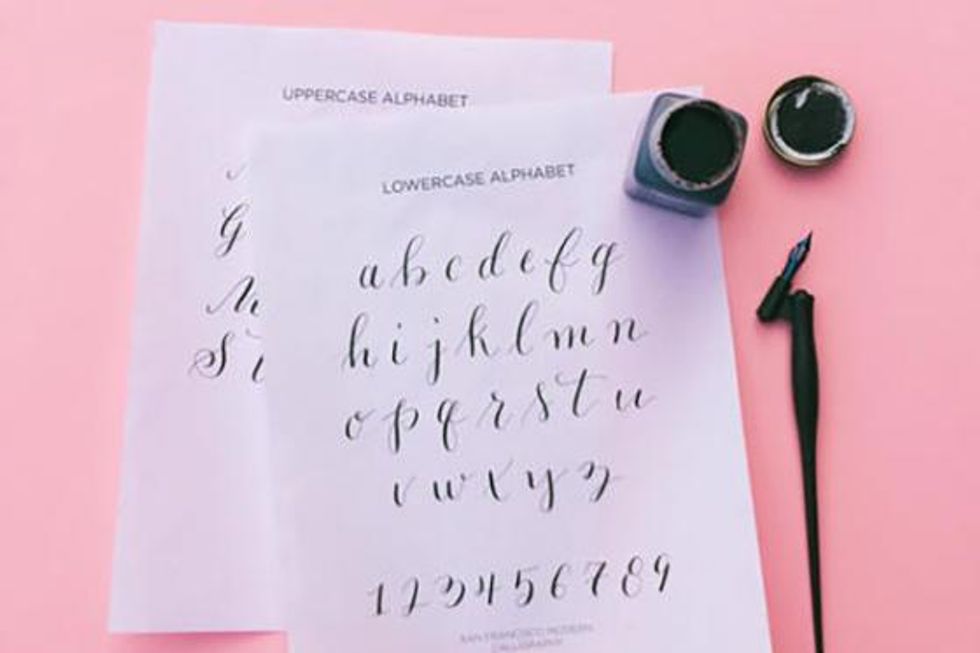 UPPERCASE ALPHABET
G
M
S T
LOWERCASE ALPHABET
a b c d e f g
h i j k l m n
o p q r s t u
v w x y z
1 2 3 4 5 6 7 8 9
SAN FRANCISCO MODERN
CALLIGRAPHY